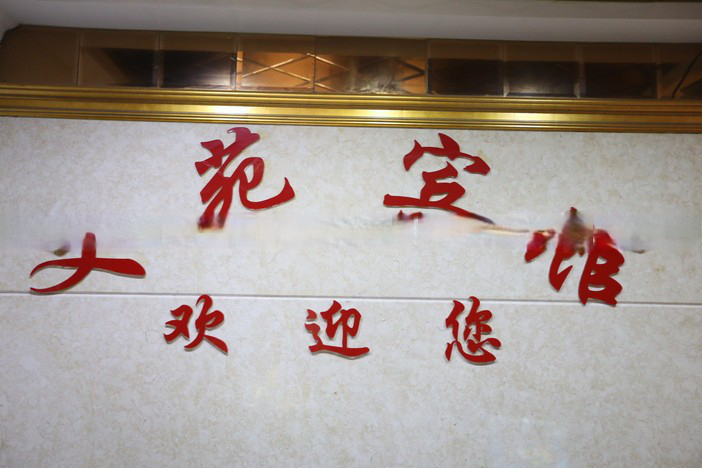 苑宾馆
欢迎您